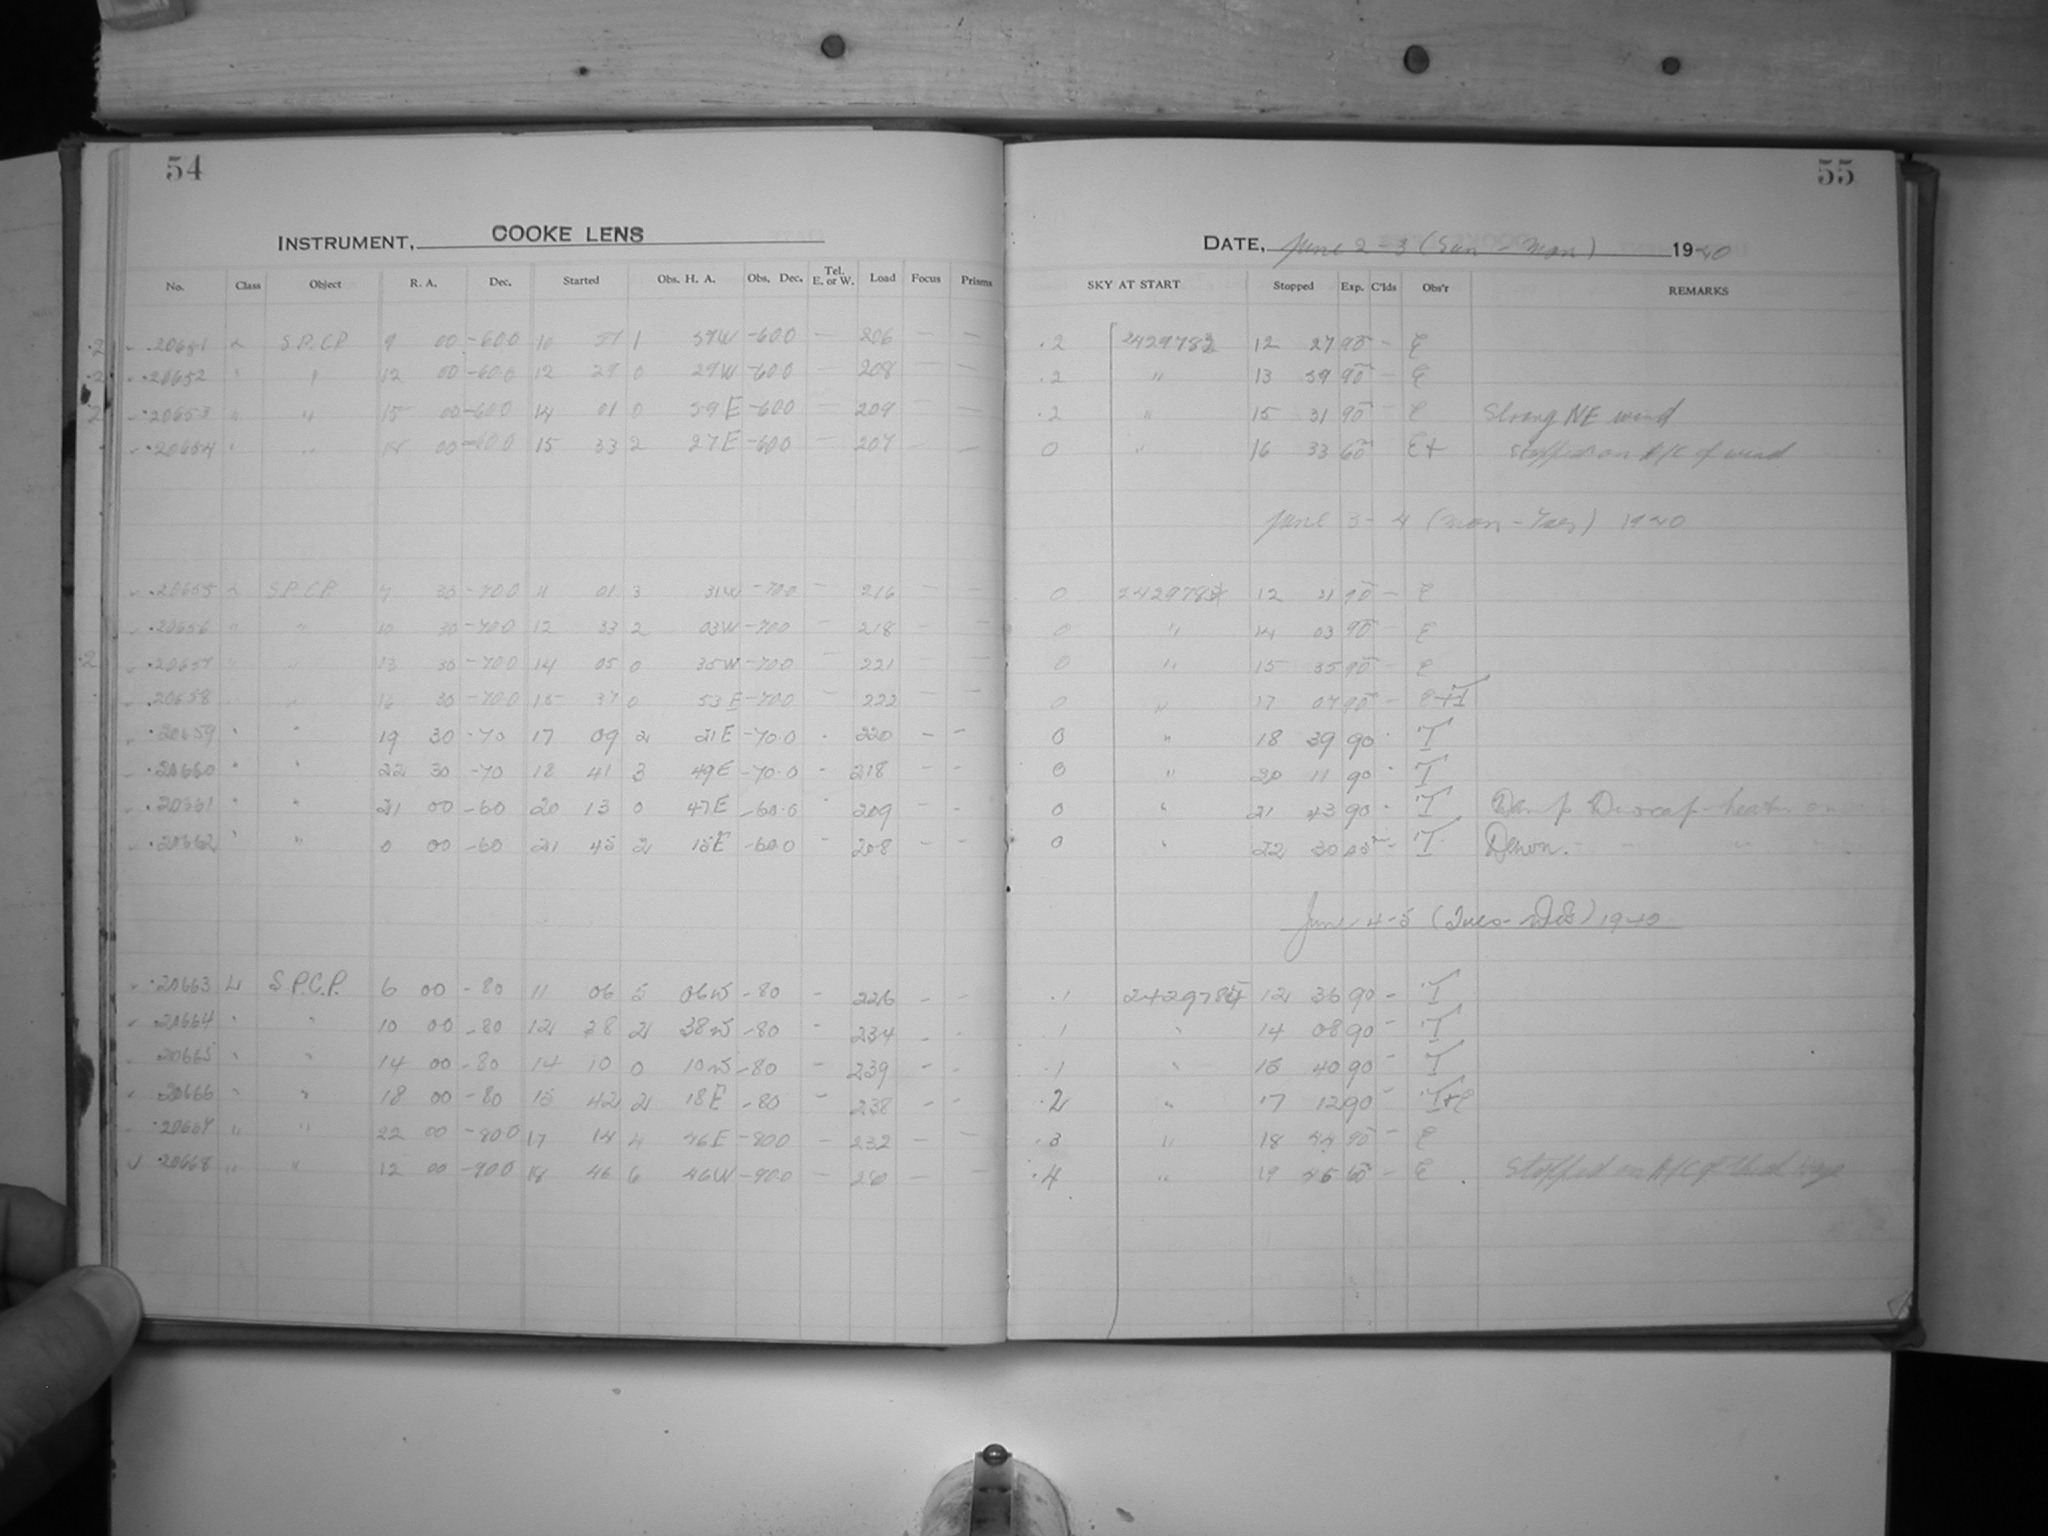 54
INSTRUMENT, COOKE LENS
No. Class Object R. A. Dec. Started Obs. H. A. Obs. Dec. Tel. E. or W. Load Focus Prisms
.2 20651 S.P.C.P. 9 00 -60.0 10 57 1 59W -60.0 — 206 — —
.2 20652 " " 12 00 -60.0 12 29 0 29W -60.0 — 208 — —
.2 20653 " " 15 00 -60.0 14 01 0 59E -60.0 — 209 — —
20654 " " 18 00 -60.0 15 33 2 27E -60.0 — 207 — —
20655 S.P.C.P. 7 30 -70.0 11 01 3 31W -70.0 — 216 — —
20656 " " 10 30 -70.0 12 33 2 03W -70.0 — 218 — —
.2 20657 " " 13 30 -70.0 14 05 0 35W -70.0 — 221 — —
20658 " " 16 30 -70.0 15 37 0 53E -70.0 — 222 — —
20659 " " 19 30 -70 17 09 2 21E -70.0 - 220 - -
20660 " " 22 30 -70 18 41 3 49E -70.0 - 218 - -
20661 " " 21 00 -60 20 13 0 47E -60.0 - 209 - -
20662 " " 0 00 -60 21 45 2 15E -60.0 - 208 - -
20663 S.P.C.P. 6 00 -80 11 06 5 06W -80 - 226 - -
20664 " " 10 00 -80 12 38 2 38W -80 - 234 - -
20665 " " 14 00 -80 14 10 0 10W -80 - 239 - -
20666 " " 18 00 -80 15 42 2 18E -80 - 238 - -
20667 " " 22 00 -80.0 17 14 4 46E -80.0 — 232 — —
20668 " " 12 00 -90.0 18 46 6 46W -90.0 — — —
55
DATE, June 2-3 (Sun - Mon) 1940
SKY AT START Stopped Exp. C'lds Obs'r REMARKS
.2 2429782 12 27 90 - E
.2 " 13 59 90 - E
.2 " 15 31 90 - E Strong NE wind
0 " 16 33 60 E+ Stopped on A/C of wind
June 3-4 (Mon - Tues) 1940
0 2429783 12 31 90 - E
0 " 14 03 90 - E
0 " 15 35 90 - E
0 " 17 07 90 - E+T
0 " 18 39 90 - T
0 " 20 11 90 - T
0 " 21 43 90 - T Damp Dewcap heater on
0 " 22 30 45 - T Dawn.
June 4-5 (Tues - Wed) 1940
.1 2429784 12 36 90 - T
.1 " 14 08 90 - T
.1 " 15 40 90 - T
.2 " 17 12 90 - T+E
.3 " 18 44 90 - E
.4 " 19 46 60 - E Stopped on A/C of thick